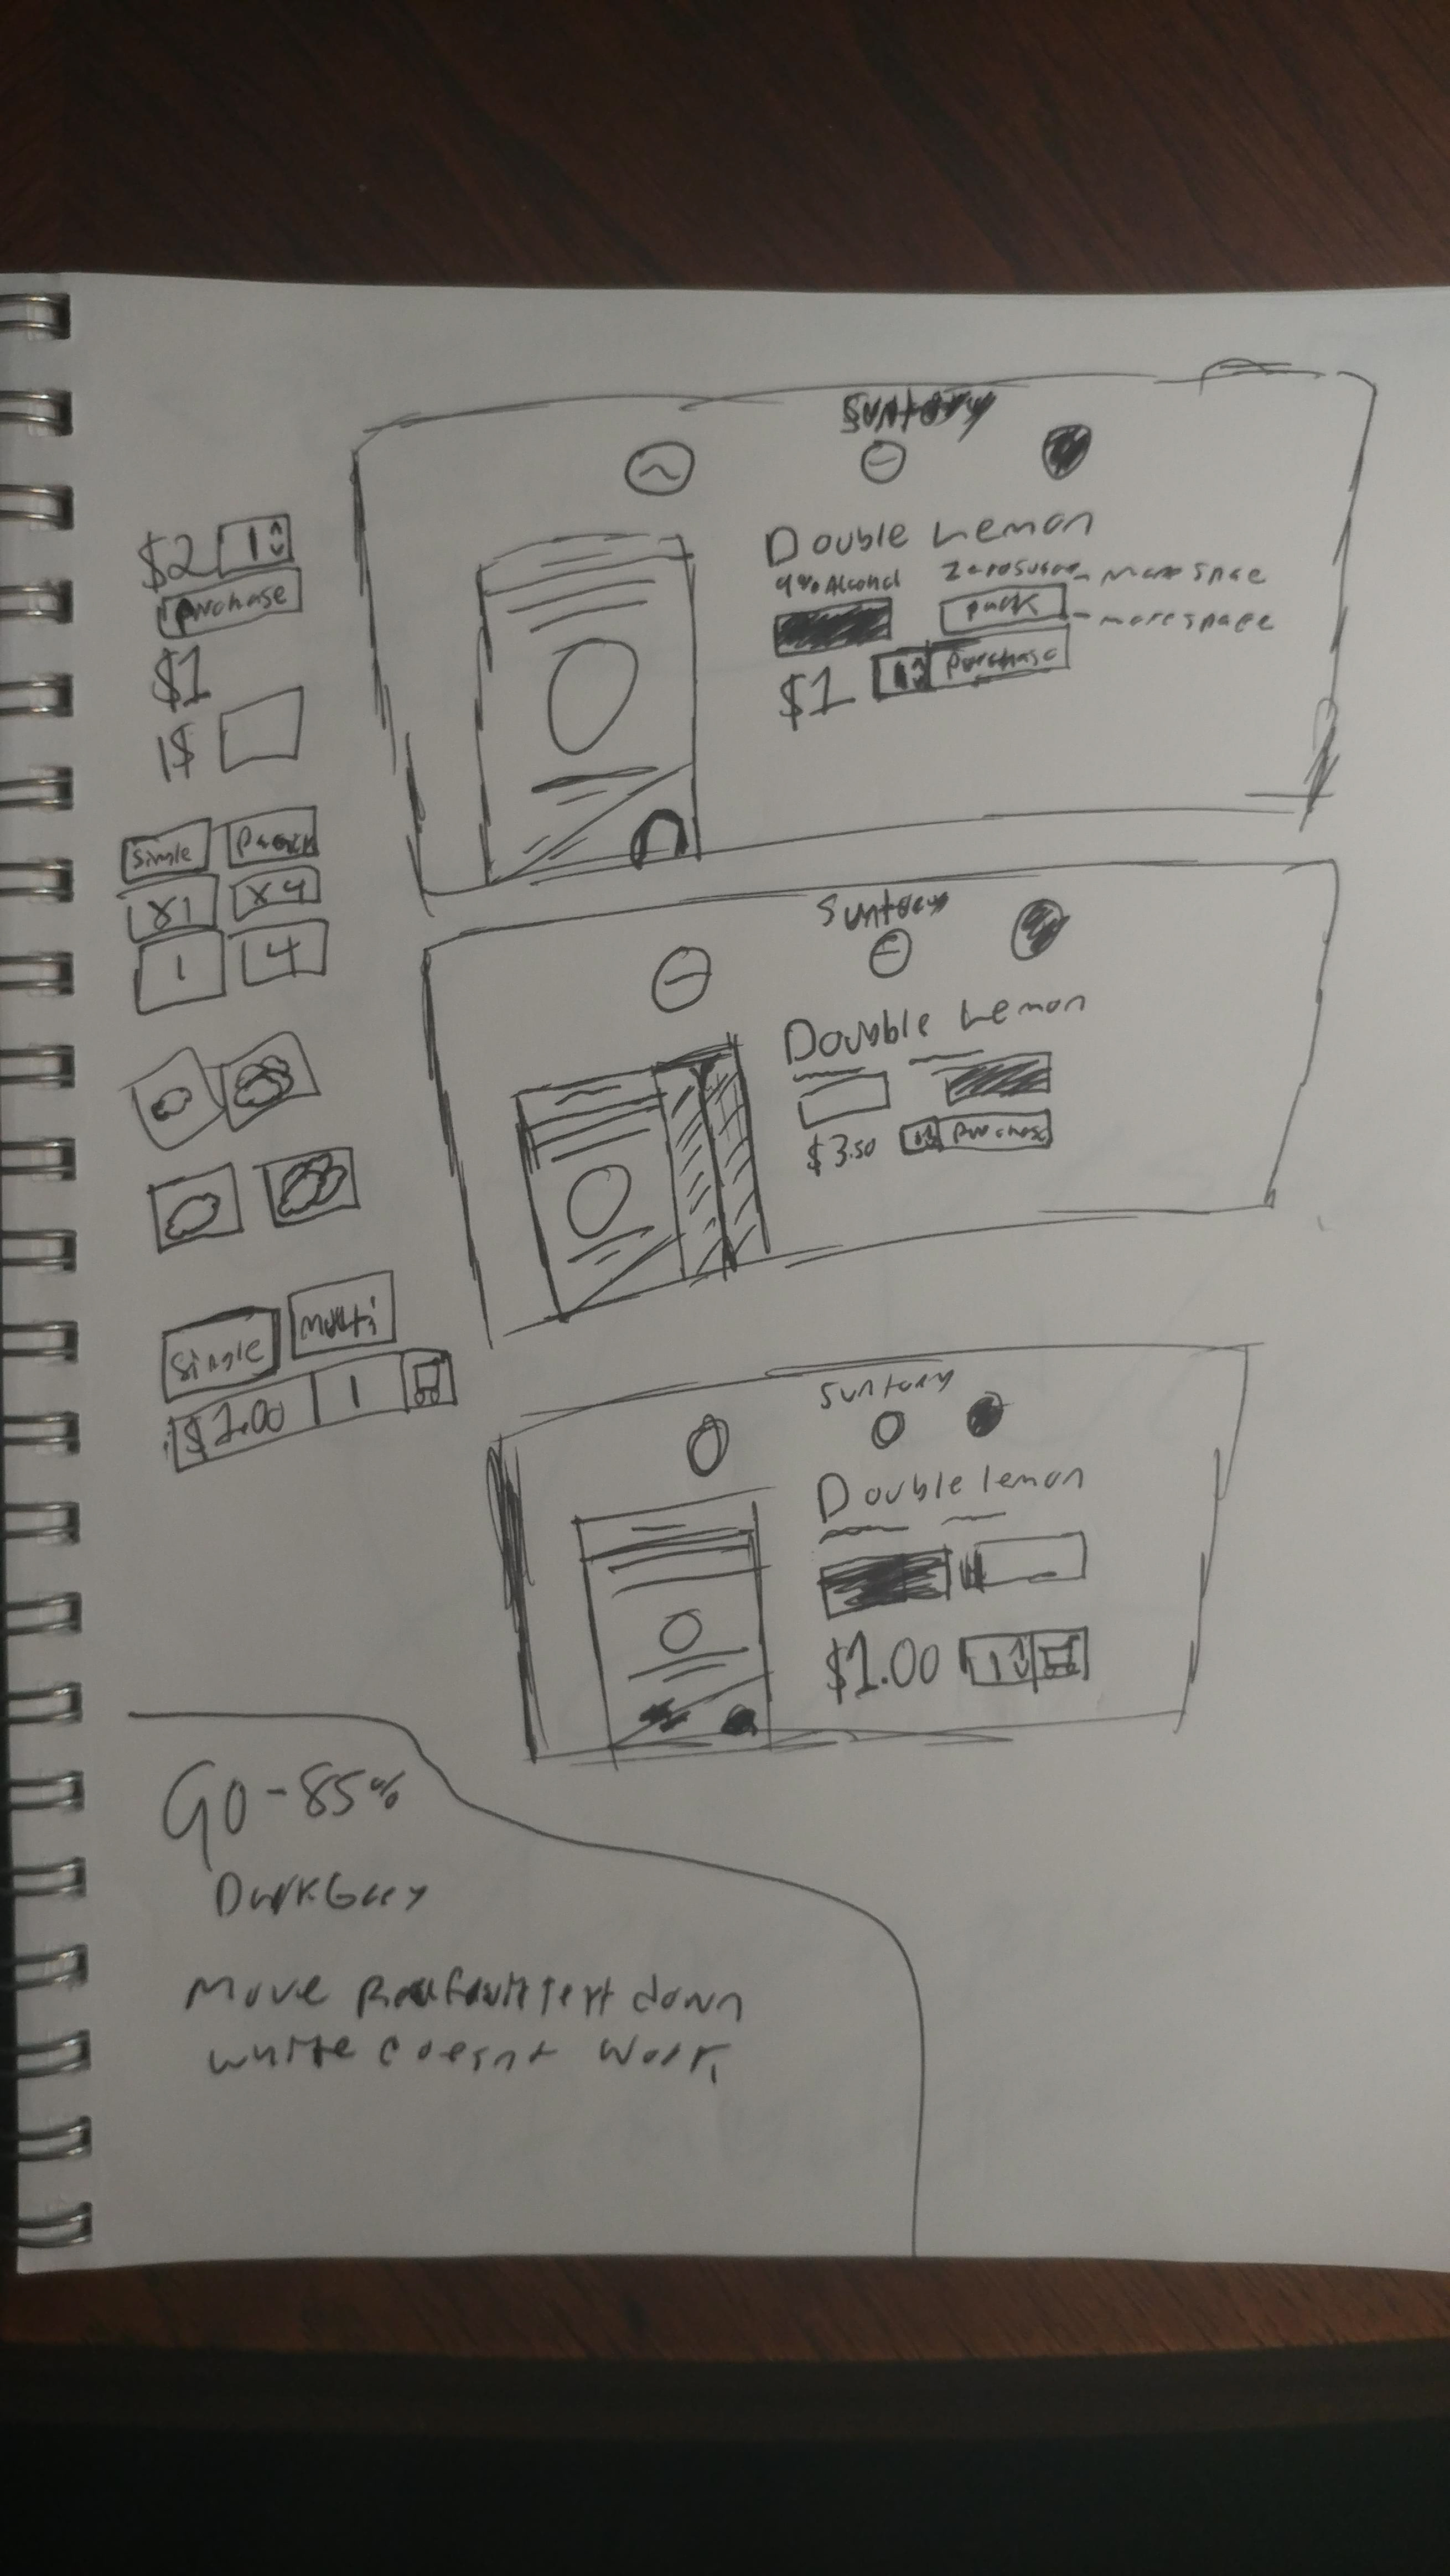 $2 1
Purchase
$1
1$
Single Pack
X1 X4
1 4
Single Multi
$1.00 1
Suntory
Double Lemon
9% Alcohol Zero Sugar - more space
Pack - more space
$1 1 Purchase
Suntory
Doubble Lemon
$3.50 Purchase
Suntory
Double lemon
$1.00 1
90-85%
Dark Grey
Move text down
white doesnt work